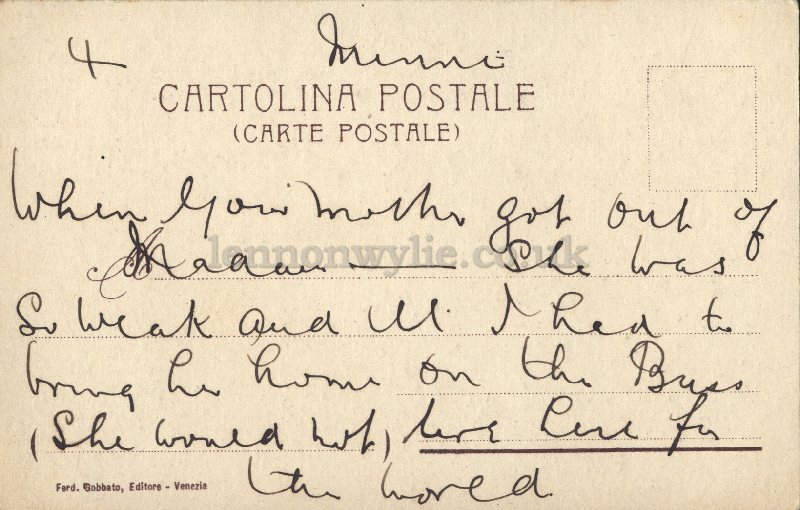 4 Minnie
CARTOLINA POSTALE
(CARTE POSTALE)
When your mother got out of
lennonwylie.co.uk
She was
So weak and ill I had to
bring her home on the Buss
(She would not) live here for
the world
Ferd. Gobbato, Editore - Venezia